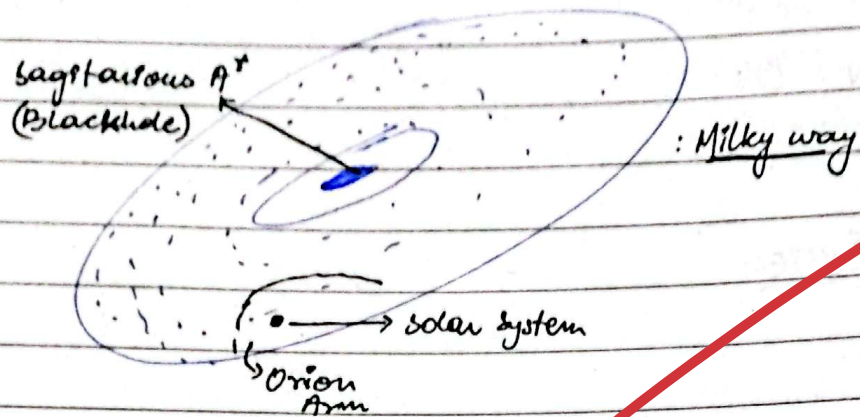 Sagitarious A*
(Blackhole)
: Milky way
solar system
Orion
Arm